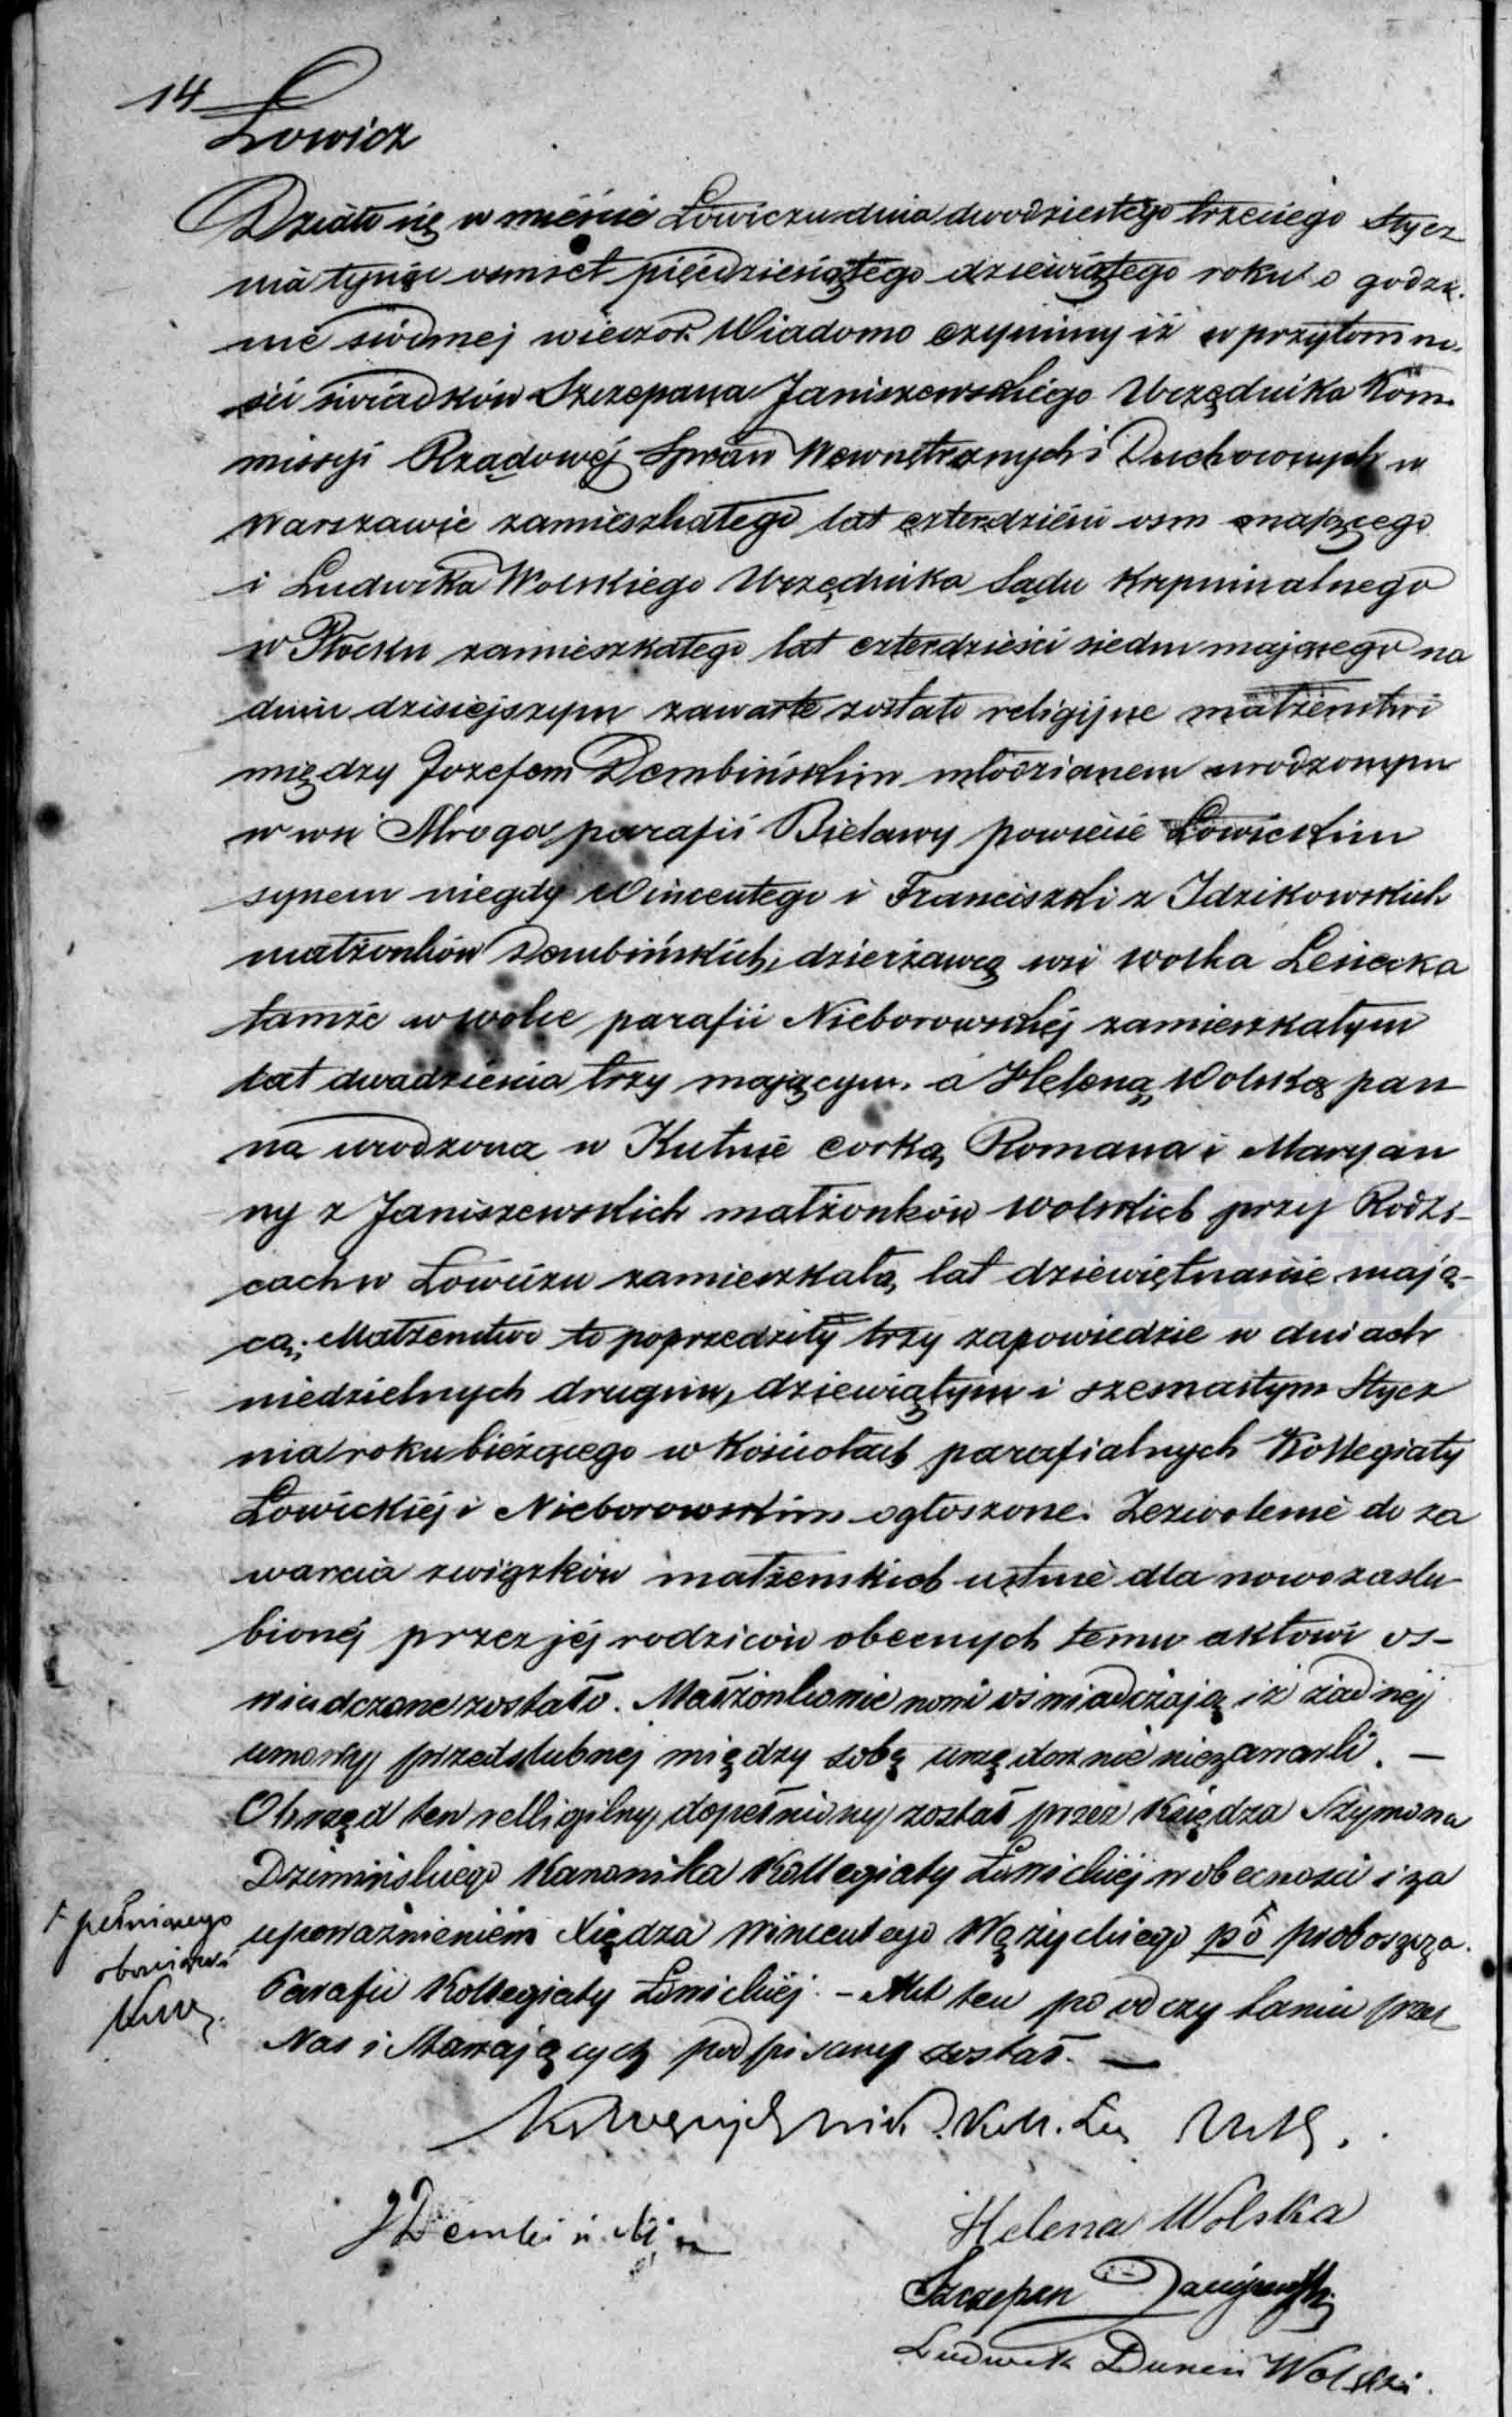 14
Łowicz
Działo się w mieście Łowiczu dnia dwudziestego trzeciego Stycz
nia tysiąc osmset pięćdziesiątego dziewiątego roku o godzi-
nie siódmej wieczor. Wiadomo czynimy iż w przytomno-
ści świadków Szczepana Janiszewskiego Urzędnika Kom-
missyi Rządowéj Spraw Wewnętrznych i Duchownych w
Warszawie zamieszkałego lat czterdzieści osm mającego
i Ludwika Wolskiego Urzędnika Sądu Kryminalnego
w Płocku zamieszkałego lat czterdzieści siedm mającego na
dniu dzisiejszym zawarte zostało religijne małżeństwo
między Jozefem Dembińskim młodzianem urodzonym
w wsi Mroga parafii Bielawy powiecie Łowickim
synem niegdy Wincentego i Franciszki z Idzikowskich
małżonków Dembińskich, dzierżawcą wsi wolka Lesiecka
tamże w wolce parafii Nieborowskiéj zamieszkałym
lat dwadzieścia trzy mającym. a Heleną Wolską pan
ną urodzona w Kutnie corką Romana i Maryan
ny z Janiszewskich małżonków Wolskich przy Rodzi-
cach w Łowiczu zamieszkałą, lat dziewiętnaście mają-
cą; Małżeństwo to poprzedziły trzy zapowiedzie w dniach
niedzielnych drugim, dziewiątym i szesnastym Stycz
nia roku bieżącego w Kościołach parafialnych Kollegiaty
Łowickiéj i Nieborowskim ogłoszone. Zezwolenie do za
warcia związków małżenskich ustnie dla nowozaslu-
bionéj przez jéj rodziców obecnych temu aktowi os-
wiadczone zostało. Małżonkowie nowi oświadczają iż żadnéj
umowy przedslubnej między sobą urzędoznie niezawarli. —
Obrzęd ten relligilny, dopełniony został przez Księdza Szymona
Dziminskiego Kanonika Kollegiaty Łowickiéj w obecności i za
upoważnieniem Xiędza Wincentego Wężyckiego po proboszcza
Parafii Kollegiaty Łowickiéj. - Akt ten po odczytaniu przez
Nas i Stawających podpisany został. —
+ pełniącego
obowiązki
J Dembiński
Helena Wolska
Szczepan Janiszewski
Ludwik Dunin Wolski.